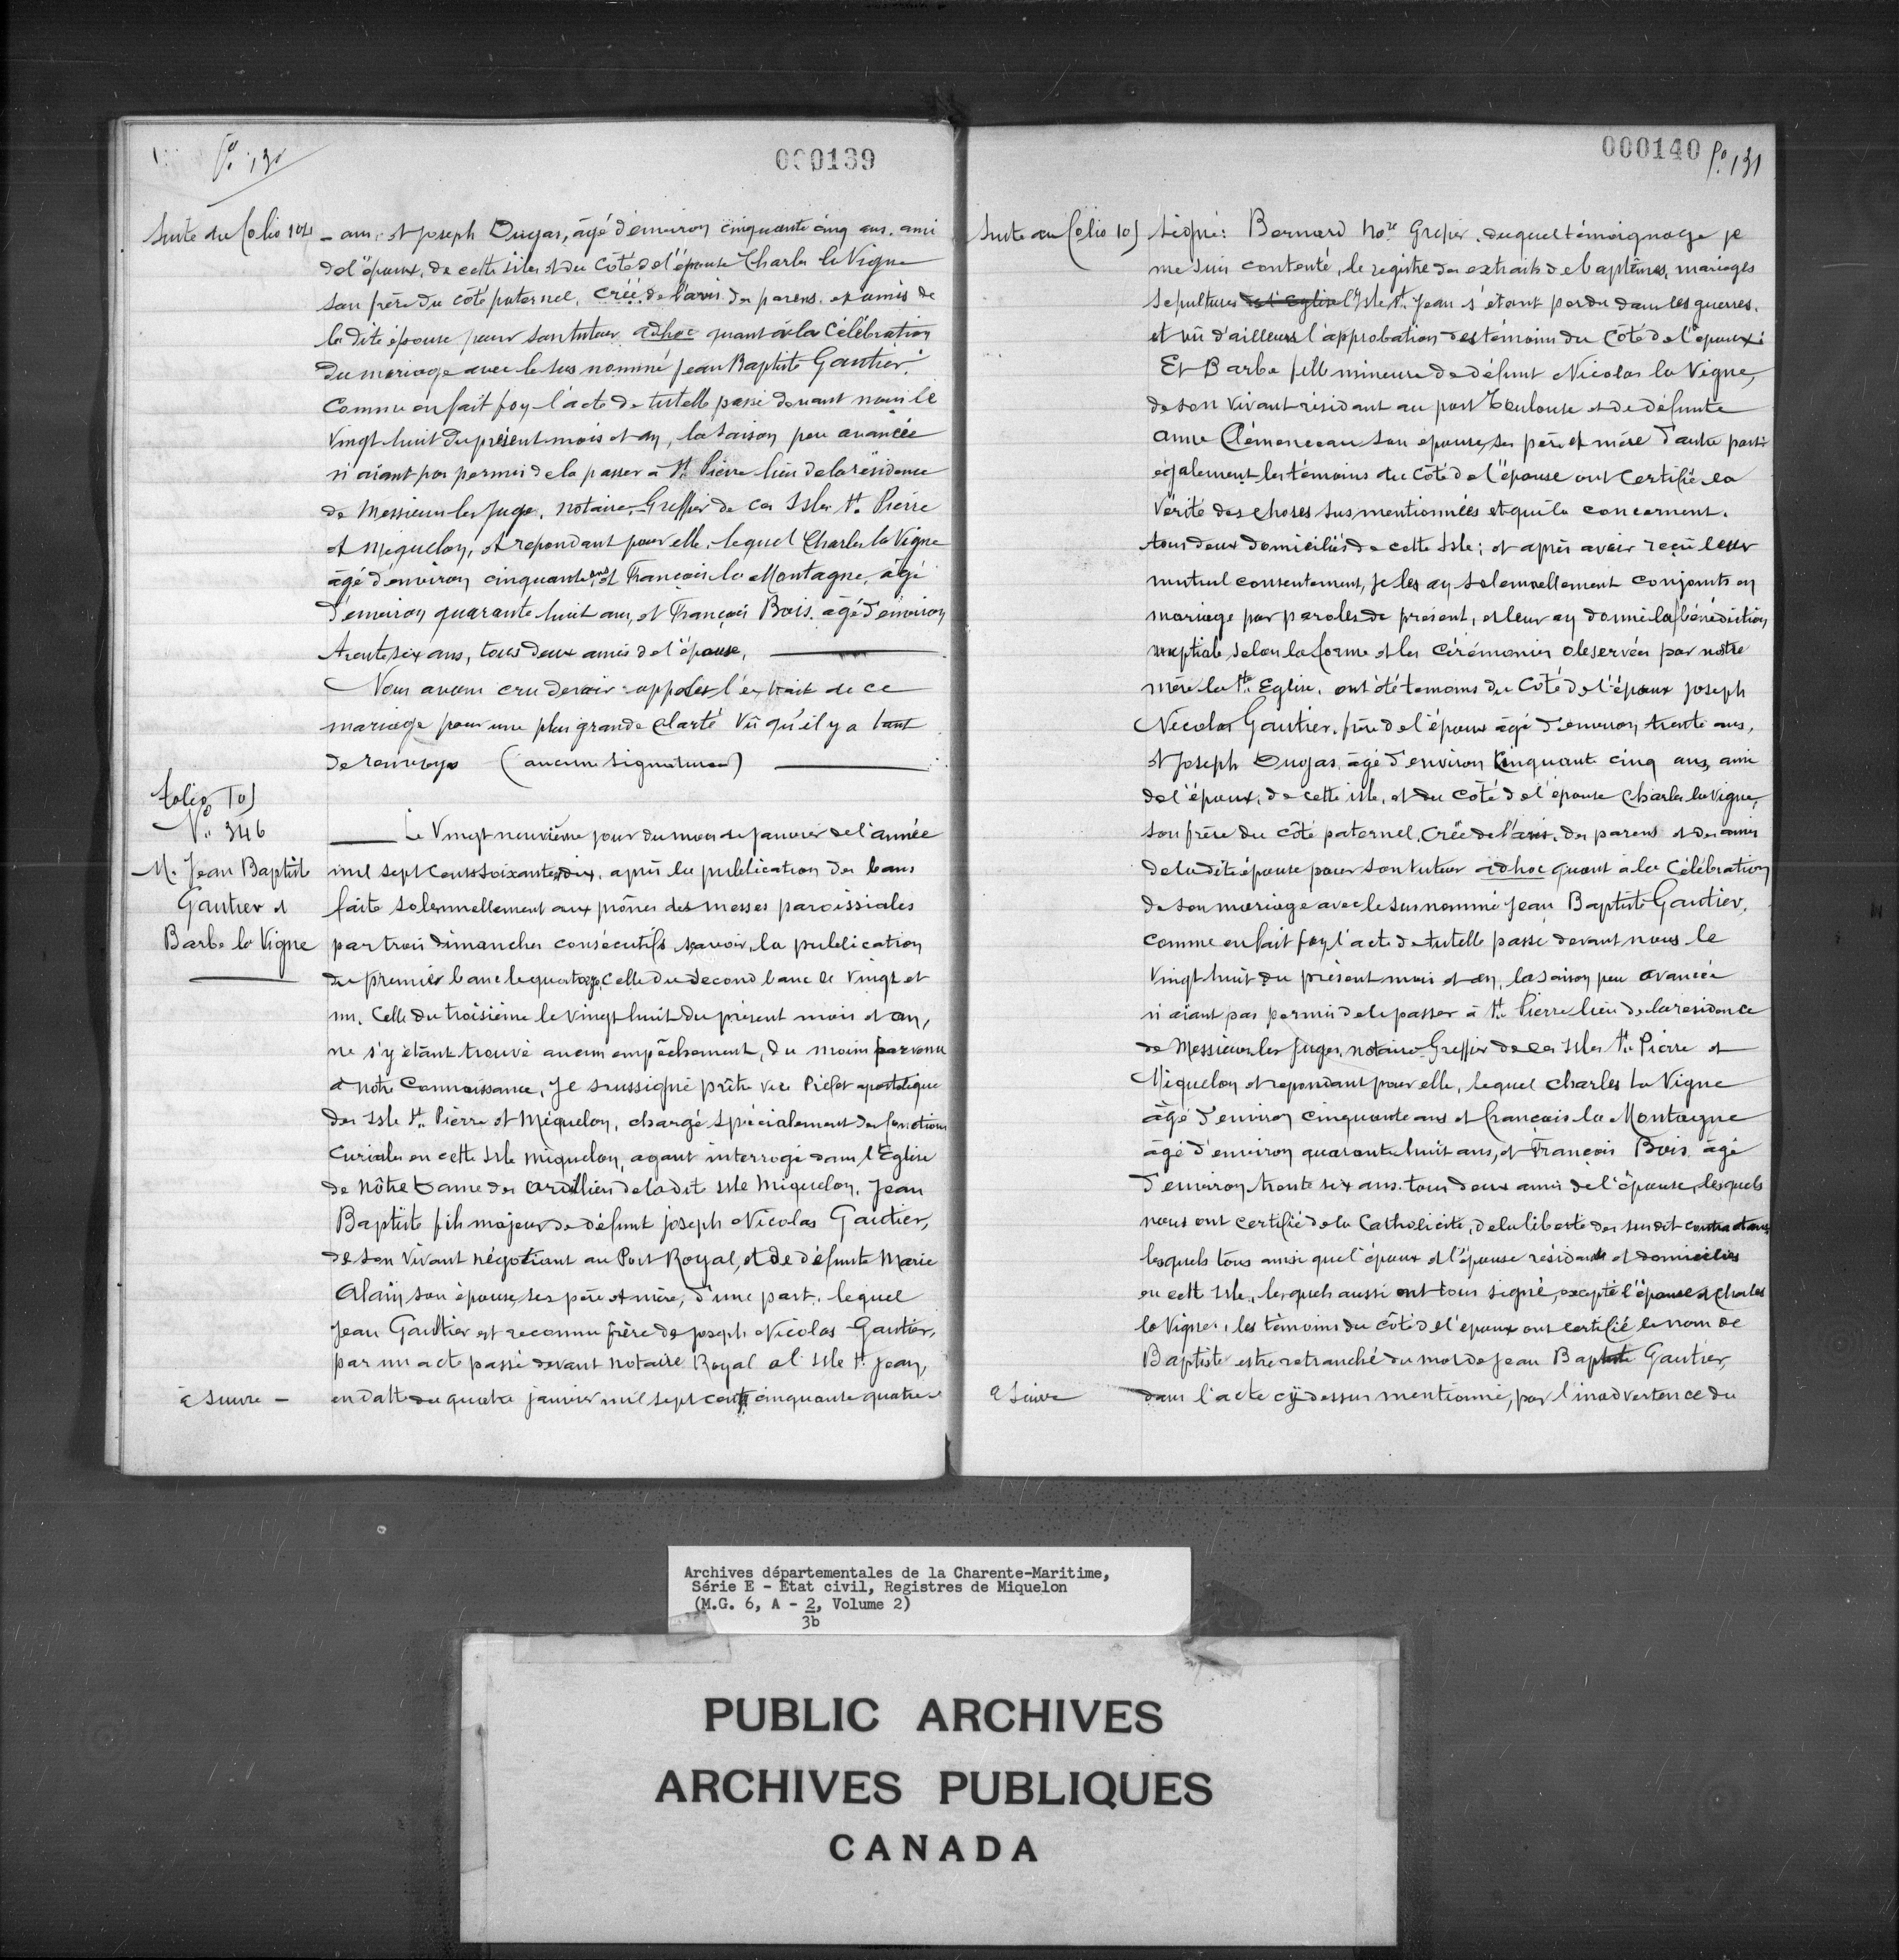 fo. 130
000139
Suite du folio 104
- ans, et Joseph Dugas, âgé d'environ cinquante cinq ans, ami
de l'époux, de cette isle, et du côté de l'épouse Charles la Vigne
son frère du côté paternel, créé de l'avis des parens et amis de
la dite épouse pour son tuteur adhoc quant à la Célébration
du mariage avec le sus nommé Jean Baptiste Gautier.
Comme en fait foy l'acte de tutelle passé devant nous le
Vingt huit du présent mois et an, la saison peu avancée
n'aiant pas permis de la passer à St. Pierre lieu de la résidence
de Messieurs les Juge, notaire, Greffier de ces Isles St. Pierre
et Miquelon, et repondant pour elle, lequel Charles la Vigne
âgé d'environ cinquante ans et François la Montagne, âgé
d'environ quarante huit ans, et François Bois, âgé d'environ
trente six ans, tous deux amis de l'épouse,
Nous avons cru devoir apposer l'extrait de ce
mariage pour une plus grande clarté vû qu'il y a tant
de renvoys (aucune signature)
folio 105
No. 346
M. Jean Baptiste
Gautier et
Barbe la Vigne
Le Vingt neuvième jour du mois de janvier de l'année
mil sept cents soixante dix, après la publication des bans
faite solennellement aux prônes des messes paroissiales
par trois dimanches consécutifs, sçavoir, la publication
du premier banc le quatorze, celle du second banc le vingt et
un, Celle du troisième le vingt huit du présent mois et an,
ne s'y étant trouvé aucun empêchement, du moins parvenu
à notre Connaissance, Je soussigné prêtre vice Préfet apostolique
des Isle St. Pierre et Miquelon, chargé spécialement des fonctions
Curiales en cette Isle Miquelon, ayant interrogé dans l'Eglise
de Nôtre Dame des Ardilliers de la dit isle Miquelon, Jean
Baptiste fils majeur de défunt Joseph Nicolas Gautier,
de son vivant négotiant au Port Royal, et de défunte Marie
Alain son épouse, ses père et mère, d'une part, lequel
Jean Gautier est reconnu frère de Joseph Nicolas Gautier,
par un acte passé devant notaire Royal al isle St. Jean,
à suivre -
en datte du quatre janvier mil sept cent cinquante quatre
000140 fo. 131
Suite au folio 105
Signé: Bernard nore Grefier, duquel témoignage je
me suis contenté, le registre des extraits de baptêmes, mariages
sepultures de l'Eglise l'Isle St. Jean s'étant perdu dans les guerres.
et vû d'ailleurs l'approbation des témoins du côté de l'époux:
Et Barbe fille mineure de défunt Nicolas la Vigne,
de son vivant résidant au port Toulouse et de défunte
Anne Clémenceau son épouse, ses père et mère d'autre part
également les témoins du côté de l'épouse ont certifié la
vérité des choses sus mentionnées et qui la concernent.
tous deux domiciliés de cette Isle; et après avoir reçu leur
mutuel consentement, je les ay solennellement conjoints en
mariage par paroles de présent, et leur ay donné la bénédiction
nuptiale selon la forme et les cérémonies observées par notre
mère la Ste Eglise, ont été témoins du côté de l'époux Joseph
Nicolas Gautier, frère de l'époux âgé d'environ trente ans,
et Joseph Dugas, âgé d'environ cinquante cinq ans, ami
de l'époux, de cette isle, et du côté de l'épouse Charles la Vigne,
son frère du côté paternel, créé de l'avis des parens et des amis
de la dite épouse pour son tuteur adhoc quant à la Célébration
de son mariage avec le sus nommé Jean Baptiste Gautier,
comme en fait foy l'acte de tutelle passé devant nous le
Vingt huit du présent mois et an, la saison peu avancée
n'aiant pas permis de le passer à St. Pierre lieu de la residence
de Messieurs les Juges, notaire Greffier de ces isles St. Pierre et
Miquelon et repondant pour elle, lequel Charles la Vigne
âgé d'environ cinquante ans et François la Montagne
âgé d'environ quarante huit ans, et François Bois âgé
d'environ trente six ans, tous deux amis de l'épouse, lesquels
nous ont certifié de la Catholicité, de la liberté des susdit contractans
lesquels tous ainsi que l'époux et l'épouse résidants et domiciliés
en cette Isle, lesquels aussi ont tous signé, excepté l'épouse et Charles
la Vigne, les témoins du côté de l'époux ont certifié le nom de
Baptiste estre retranché du mot de Jean Baptiste Gautier,
à suivre
dans l'acte cÿ dessus mentionné, par l'inadvertence du
Archives départementales de la Charente-Maritime,
Série E - État civil, Registres de Miquelon
(M.G. 6, A - 2, Volume 2)
3b
PUBLIC ARCHIVES
ARCHIVES PUBLIQUES
CANADA